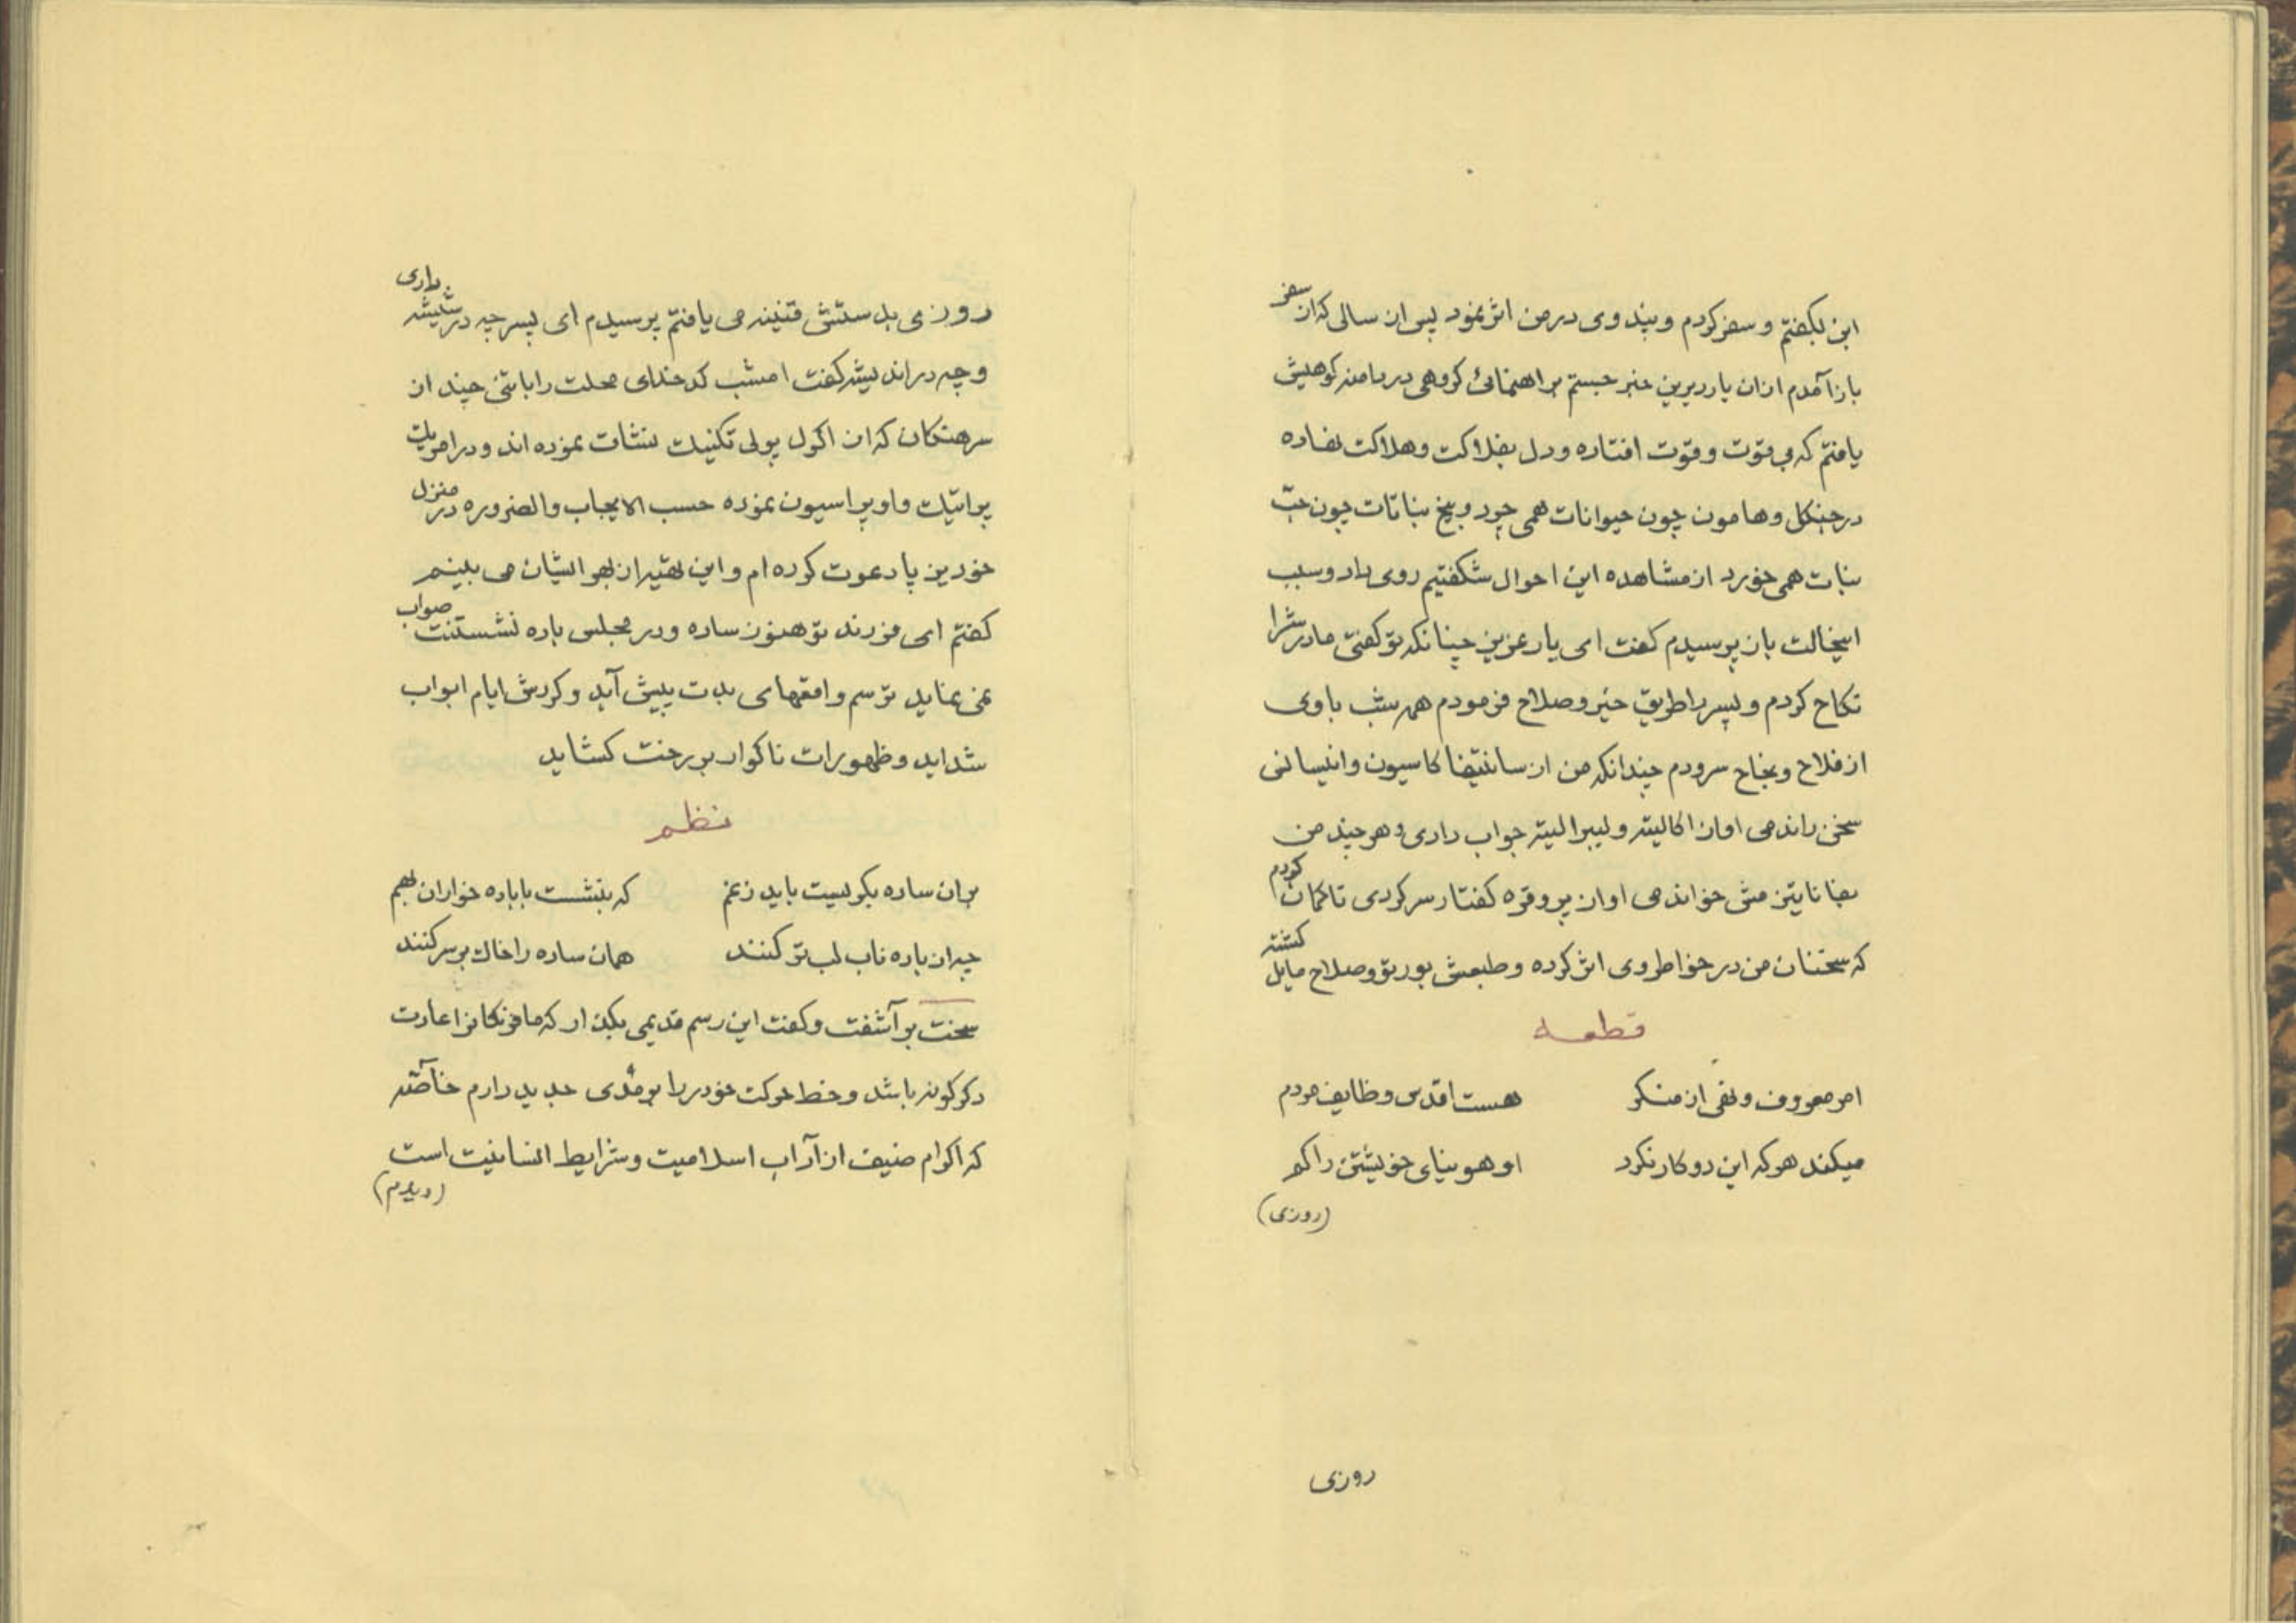 این بگفتم و سفر کردم و پند وی در من اثر نمود پس از سالی که از سفر
باز آمدم از ان یار دیرین خبر جستم براهنمائی گروهی در دامنه کوهیش
یافتم که بی قوّت و قوّت افتاده و دل بفلاکت و هلاکت نهاده
در جنگل و هامون چون حیوانات همی چرد و بیخ نباتات چون حبّ
نبات همی خورد از مشاهده این احوال شگفتیم روی داد و سبب
اینحالت باز پرسیدم گفت ای یار عزیز چنانکه تو گفتی مادرش را
نکاح کردم و پسر را طریق خیر و صلاح فرمودم همه شب با وی
از فلاح و نجاح سرودم چندانکه من از سانتیفاکاسیون و
سخن راندمی او از اگالیته و لیبرالیته جواب دادی و هر چند من
خواندمی او از پروقره گفتار سر کردی تا گمان کردم
که سخنان من در خواطر وی اثر کرده و طبعش بورتو و صلاح مایل گشته
قطعه
امر معروف و نهی از منکر هست اقدس وظایف مردم
میکند هر که این دو کار نکرد او هو بنیای خویشتن را گم
(روزی)
روزی
روزی بدستش قنینه می یافتم پرسیدم ای پسر چه در شیشه داری
و چه در اندیشه گفت امشب کدخدای محلت را با تنی چند از
سرهنگان که از اکول پولی تکنیک نشأت نموده اند و در امور
پولتیک واوپراسیون نموده حسب الایجاب والضروره در منزل
خود بزپا دعوت کرده ام و این بهتر از بهر ایشان می بینم
گفتم ای فرزند تو هنوز ساده و در مجلس باده نشستنت صواب
نمی نماید ترسم واقعهای بدت پیش آید و گردش ایام ابواب
شداید و ظهورات ناگوار بر رخت گشاید
نظم
بران ساده بگریست باید زغم که بنشست با باده خواران بهم
چه از باده ناب لب تر کنند همان ساده را خاك بر سر کنند
سخت بر آشفت و گفت این رسم قدیمی بگذار که ما فرنگانرا عادت
دگرگونه باشد و خط حرکت خود را بر مُدی جدید دارم خاصّه
که اکرام ضیف از آداب اسلامیت و شرایط انسانیت است
(دیدم)